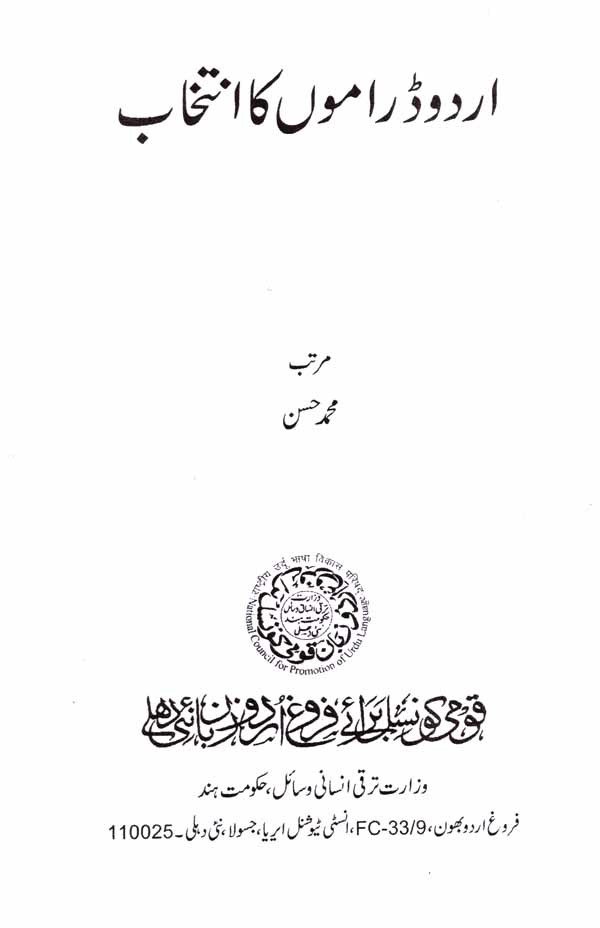 اردو ڈراموں کا انتخاب
مرتب
محمد حسن
राष्ट्रीय उर्दू भाषा विकास परिषद
قومی کونسل
وزارت
ترقی انسانی وسائل
حکومت ہند
نئی دہلی
National Council for Promotion of Urdu Language
قومی کونسل برائے فروغ اردو زبان نئی دہلی
وزارت ترقی انسانی وسائل، حکومت ہند
فروغ اردو بھون، FC-33/9، انسٹی ٹیوشنل ایریا، جسولا، نئی دہلی۔ 110025